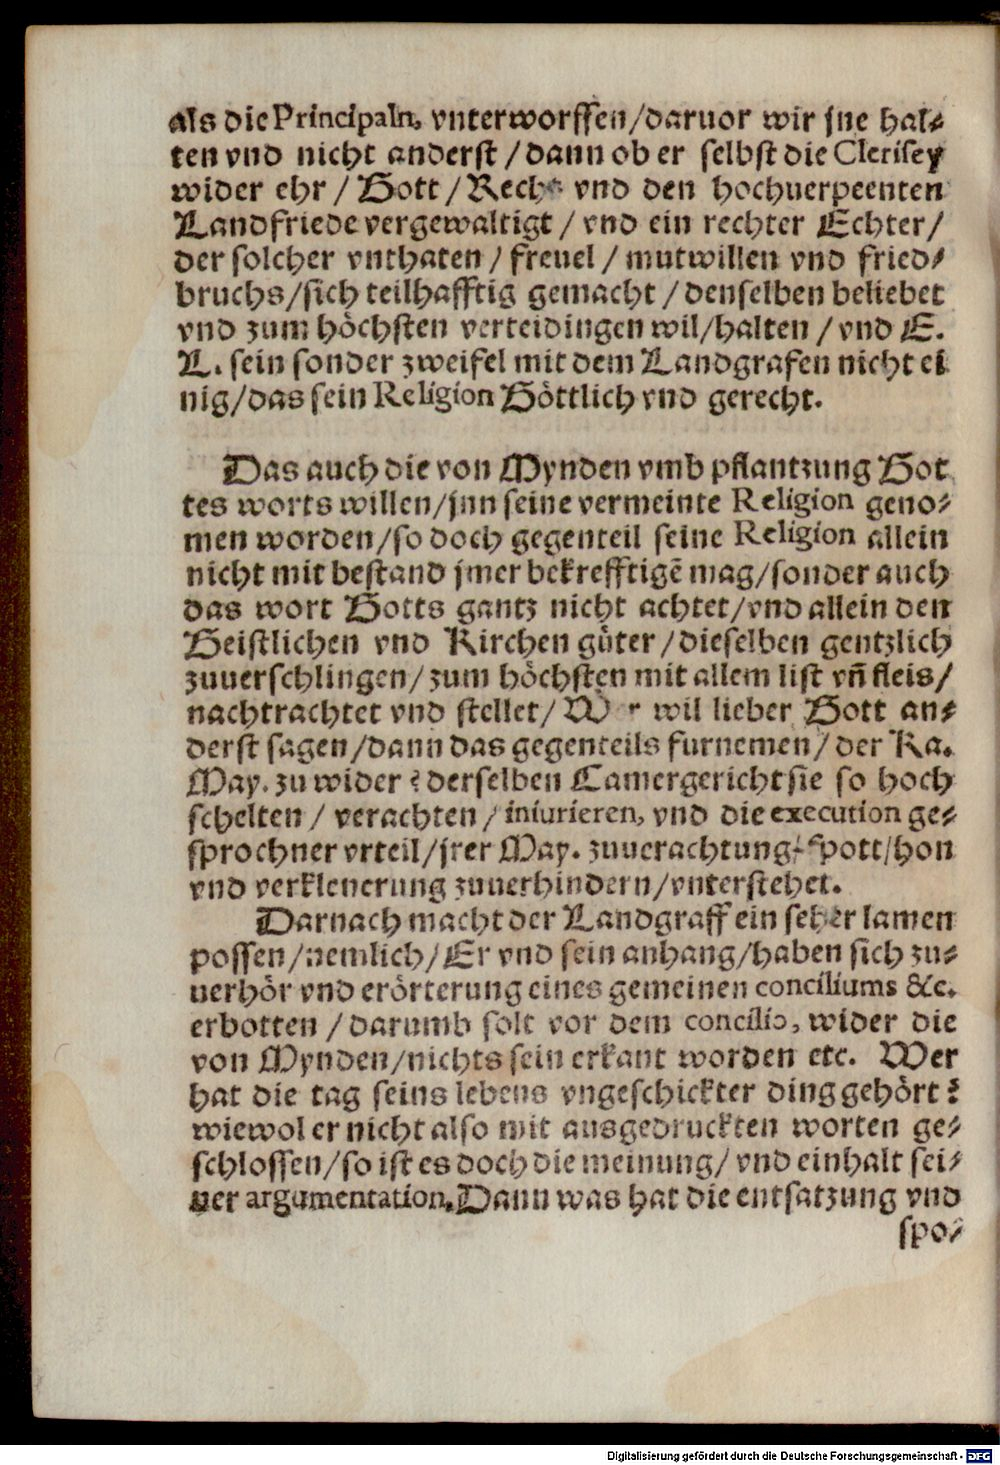 als die Principaln, vnterworffen/daruor wir jne hal-
ten vnd nicht anderst/dann ob er selbst die Clerisey
wider ehr/Gott/Recht vnd den hochuerpeenten
Landfriede vergewaltigt/vnd ein rechter Echter/
der solcher vnthaten/freuel/mutwillen vnd fried-
bruchs/sich teilhafftig gemacht/denselben beliebet
vnd zum höchsten verteidingen wil/halten/vnd E.
L. sein sonder zweifel mit dem Landgrafen nicht ei
nig/das sein Religion Göttlich vnd gerecht.
Das auch die von Mynden vmb pflantzung Got
tes worts willen/jnn seine vermeinte Religion geno-
men worden/so doch gegenteil seine Religion allein
nicht mit bestand jmer bekrefftigē mag/sonder auch
das wort Gotts gantz nicht achtet/vnd allein den
Geistlichen vnd Kirchen güter/dieselben gentzlich
zuuerschlingen/zum höchsten mit allem list vñ fleis/
nachtrachtet vnd stellet/Wer wil lieber Gott an-
derst sagen/dann das gegenteils furnemen/der Ka.
May. zu wider? derselben Camergericht sie so hoch
schelten/verachten/iniurieren, vnd die execution ge-
sprochner vrteil/jrer May. zuuerachtung/spott/hon
vnd verklenerung zuuerhindern/vnterstehet.
Darnach macht der Landgraff ein seher lamen
possen/nemlich/Er vnd sein anhang/haben sich zu-
uerhör vnd erörterung eines gemeinen conciliums &c.
erbotten/darumb solt vor dem concilio, wider die
von Mynden/nichts sein erkant worden etc. Wer
hat die tag seins lebens vngeschickter ding gehört?
wiewol er nicht also mit ausgedruckten worten ge-
schlossen/so ist es doch die meinung/vnd einhalt sei-
ner argumentation. Dann was hat die entsatzung vnd
spo-
Digitalisierung gefördert durch die Deutsche Forschungsgemeinschaft - DFG